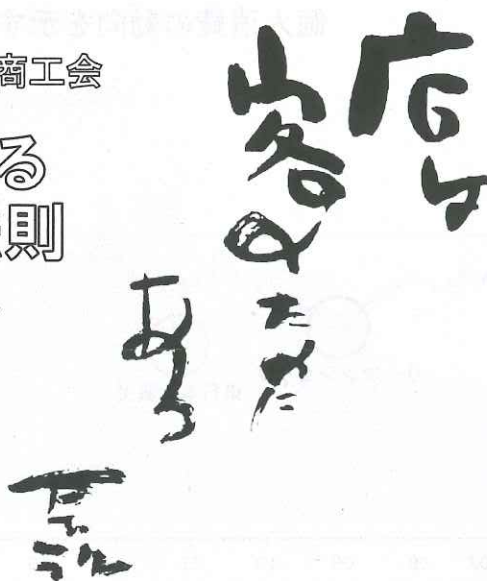 商工会
る
則
店は
客のために
ある